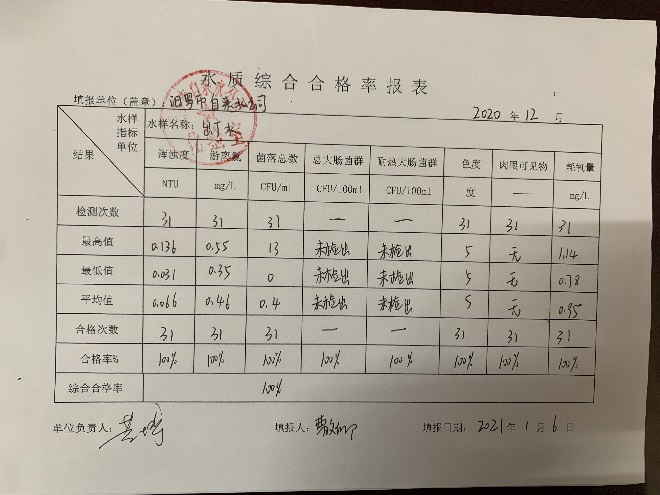 水质综合合格率报表
填报单位(盖章): 汨罗市自来水公司 2020年12月
水样 水样名称: 出厂水
指标 浑浊度 游离氯 菌落总数 总大肠菌群 耐热大肠菌群 色度 肉眼可见物 耗氧量
单位 NTU mg/L CFU/ml CFU/100ml CFU/100ml 度 — mg/L
结果
检测次数 31 31 31 — — 31 31 31
最高值 0.136 0.55 13 未检出 未检出 5 无 1.14
最低值 0.031 0.35 0 未检出 未检出 5 无 0.78
平均值 0.066 0.46 0.4 未检出 未检出 5 无 0.95
合格次数 31 31 31 — — 31 31 31
合格率% 100% 100% 100% 100% 100% 100% 100% 100%
综合合格率 100%
单位负责人: 填报人: 填报日期: 2021年1月6日